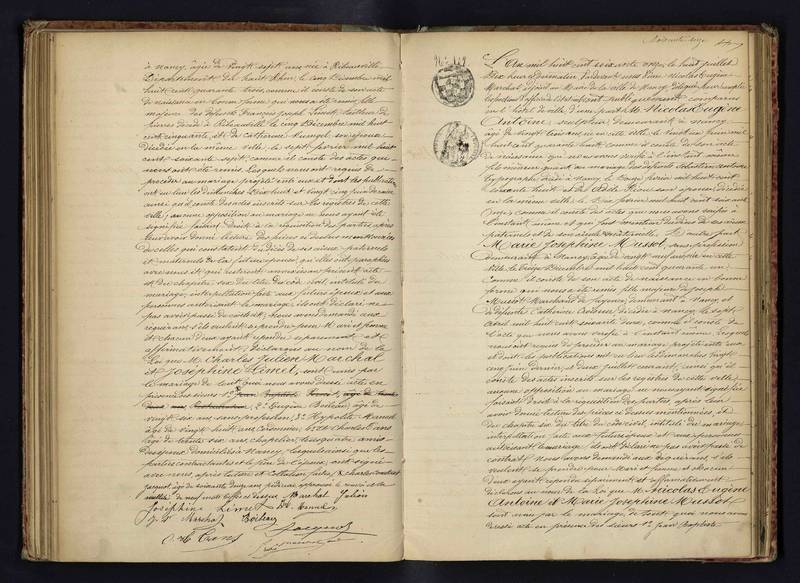 à Nancy, âgée de vingt sept ans, née à Ribeauvillé
Département du haut Rhin, le cinq Décembre mil
huit cent quarante trois, comme il conste de son acte
de naissance en bonne forme qui nous a été remis, fille
majeure des défunts François Joseph
décédé à Ribeauvillé le cinq Décembre mil huit
cent cinquante, et de Catherine son épouse
Décédée en la même ville le sept février mil huit
cent soixante sept, comme il conste des actes qui
nous ont été remis. Lesquels nous ont requis de
procéder au mariage projeté entre eux et dont les publications
ont eu lieu les dimanches Dix huit et vingt cinq juin derniers
ainsi qu'il conste des actes inscrits sur les registres de cette
ville; aucune opposition au mariage ne nous ayant été
signifiée faisant droit à la réquisition des parties après
leur avoir donné lecture des pièces ci dessus mentionnées
de celles qui constatent le décès de ses aïeux paternels
et maternels de la future épouse, qu'elles ont paraphées
avec nous et qui resteront annexées au présent acte
et du chapitre six du titre du code civil intitulé du
mariage, interpellation faite aux futurs époux et aux
personnes autorisant le mariage, ils ont déclaré ne
pas avoir passé de contrat; Nous avons demandé aux
requérants s'ils veulent se prendre pour Mari et femme
et chacun d'eux ayant répondu séparément et
affirmativement, déclarons au nom de la
Loi que M. Charles Julien Marchal
et Joséphine Limel, sont unis par
le mariage de tout quoi nous avons dressé acte en
présence des sieurs 1°. Jean Baptiste
2°. Eugène Boileau, âgé de
vingt six ans, sans profession; 3°. Hypolite
âgé de vingt huit ans, et Charles
âgé de trente six ans, chapelier, tous quatre amis
des époux, domiciliés à Nancy, lesquels ainsi que les
parties contractantes et le père de l'époux, ont signé
avec nous après lecture et collation faites
Jacquot, âgé de soixante douze ans
de neuf mots biffés ci dessus Marchal Julien
Joséphine Limel
Marchal Boileau
Jacquot
N° 449
L'An mil huit cent soixante onze, le huit juillet
Dix heures du matin pardevant nous Nicolas Eugène
Marchal adjoint au Maire de la ville de Nancy délégué pour remplir
les fonctions d'officier de l'état civil, ont publiquement comparu
en l'hôtel de ville, d'une part M. Nicolas Eugène
Antoine, sculpteur, demeurant à Nancy
âgé de vingt trois ans, né en cette ville, le vingt un juin mil
huit cent quarante huit, comme il conste de son acte
de naissance que nous avons vérifié à l'instant même,
fils mineur quant au mariage des défunts Sébastien Antoine
décédé à Nancy le douze février mil huit cent
soixante huit et de Adèle son épouse, décédée
en la même ville le février mil huit cent soixante
onze, comme il conste des actes que nous avons vérifiés à
l'instant même et qui font mention du décès de ses aïeux
paternels et de son aïeule maternelle. D'autre part
Marie Joséphine Mussot, sans profession
demeurant à Nancy, âgée de vingt neuf ans, née en cette
ville, le treize Décembre mil huit cent quarante un
comme il conste de son acte de naissance en bonne
forme qui nous a été remis, fille majeure de Joseph
Mussot Marchand de fayence, demeurant à Nancy, et
de défunte Catherine décédée à Nancy, le sept
avril mil huit cent soixante onze, comme il conste de
l'acte que nous avons vérifié à l'instant même; Lesquels
nous ont requis de procéder au mariage projeté entre eux
et dont les publications ont eu lieu les dimanches vingt
cinq juin dernier, et deux juillet courant, ainsi qu'il
conste des actes inscrits sur les registres de cette ville;
aucune opposition au mariage ne nous ayant été signifiée
faisant droit à la réquisition des parties, après leur
avoir donné lecture des pièces ci dessus mentionnées, et
du chapitre six du titre du code civil, intitulé du mariage,
interpellation faite aux futurs époux et aux personnes
autorisant le mariage, ils ont déclaré ne pas avoir passé de
contrat; Nous avons demandé aux requérants, s'ils
veulent se prendre pour Mari et femme et chacun
d'eux ayant répondu séparément et affirmativement
déclarons au nom de la Loi que M. Nicolas Eugène
Antoine et Marie Joséphine Mussot
sont unis par le mariage, de tout quoi nous avons
dressé acte en présence des sieurs 1°. Jean Baptiste